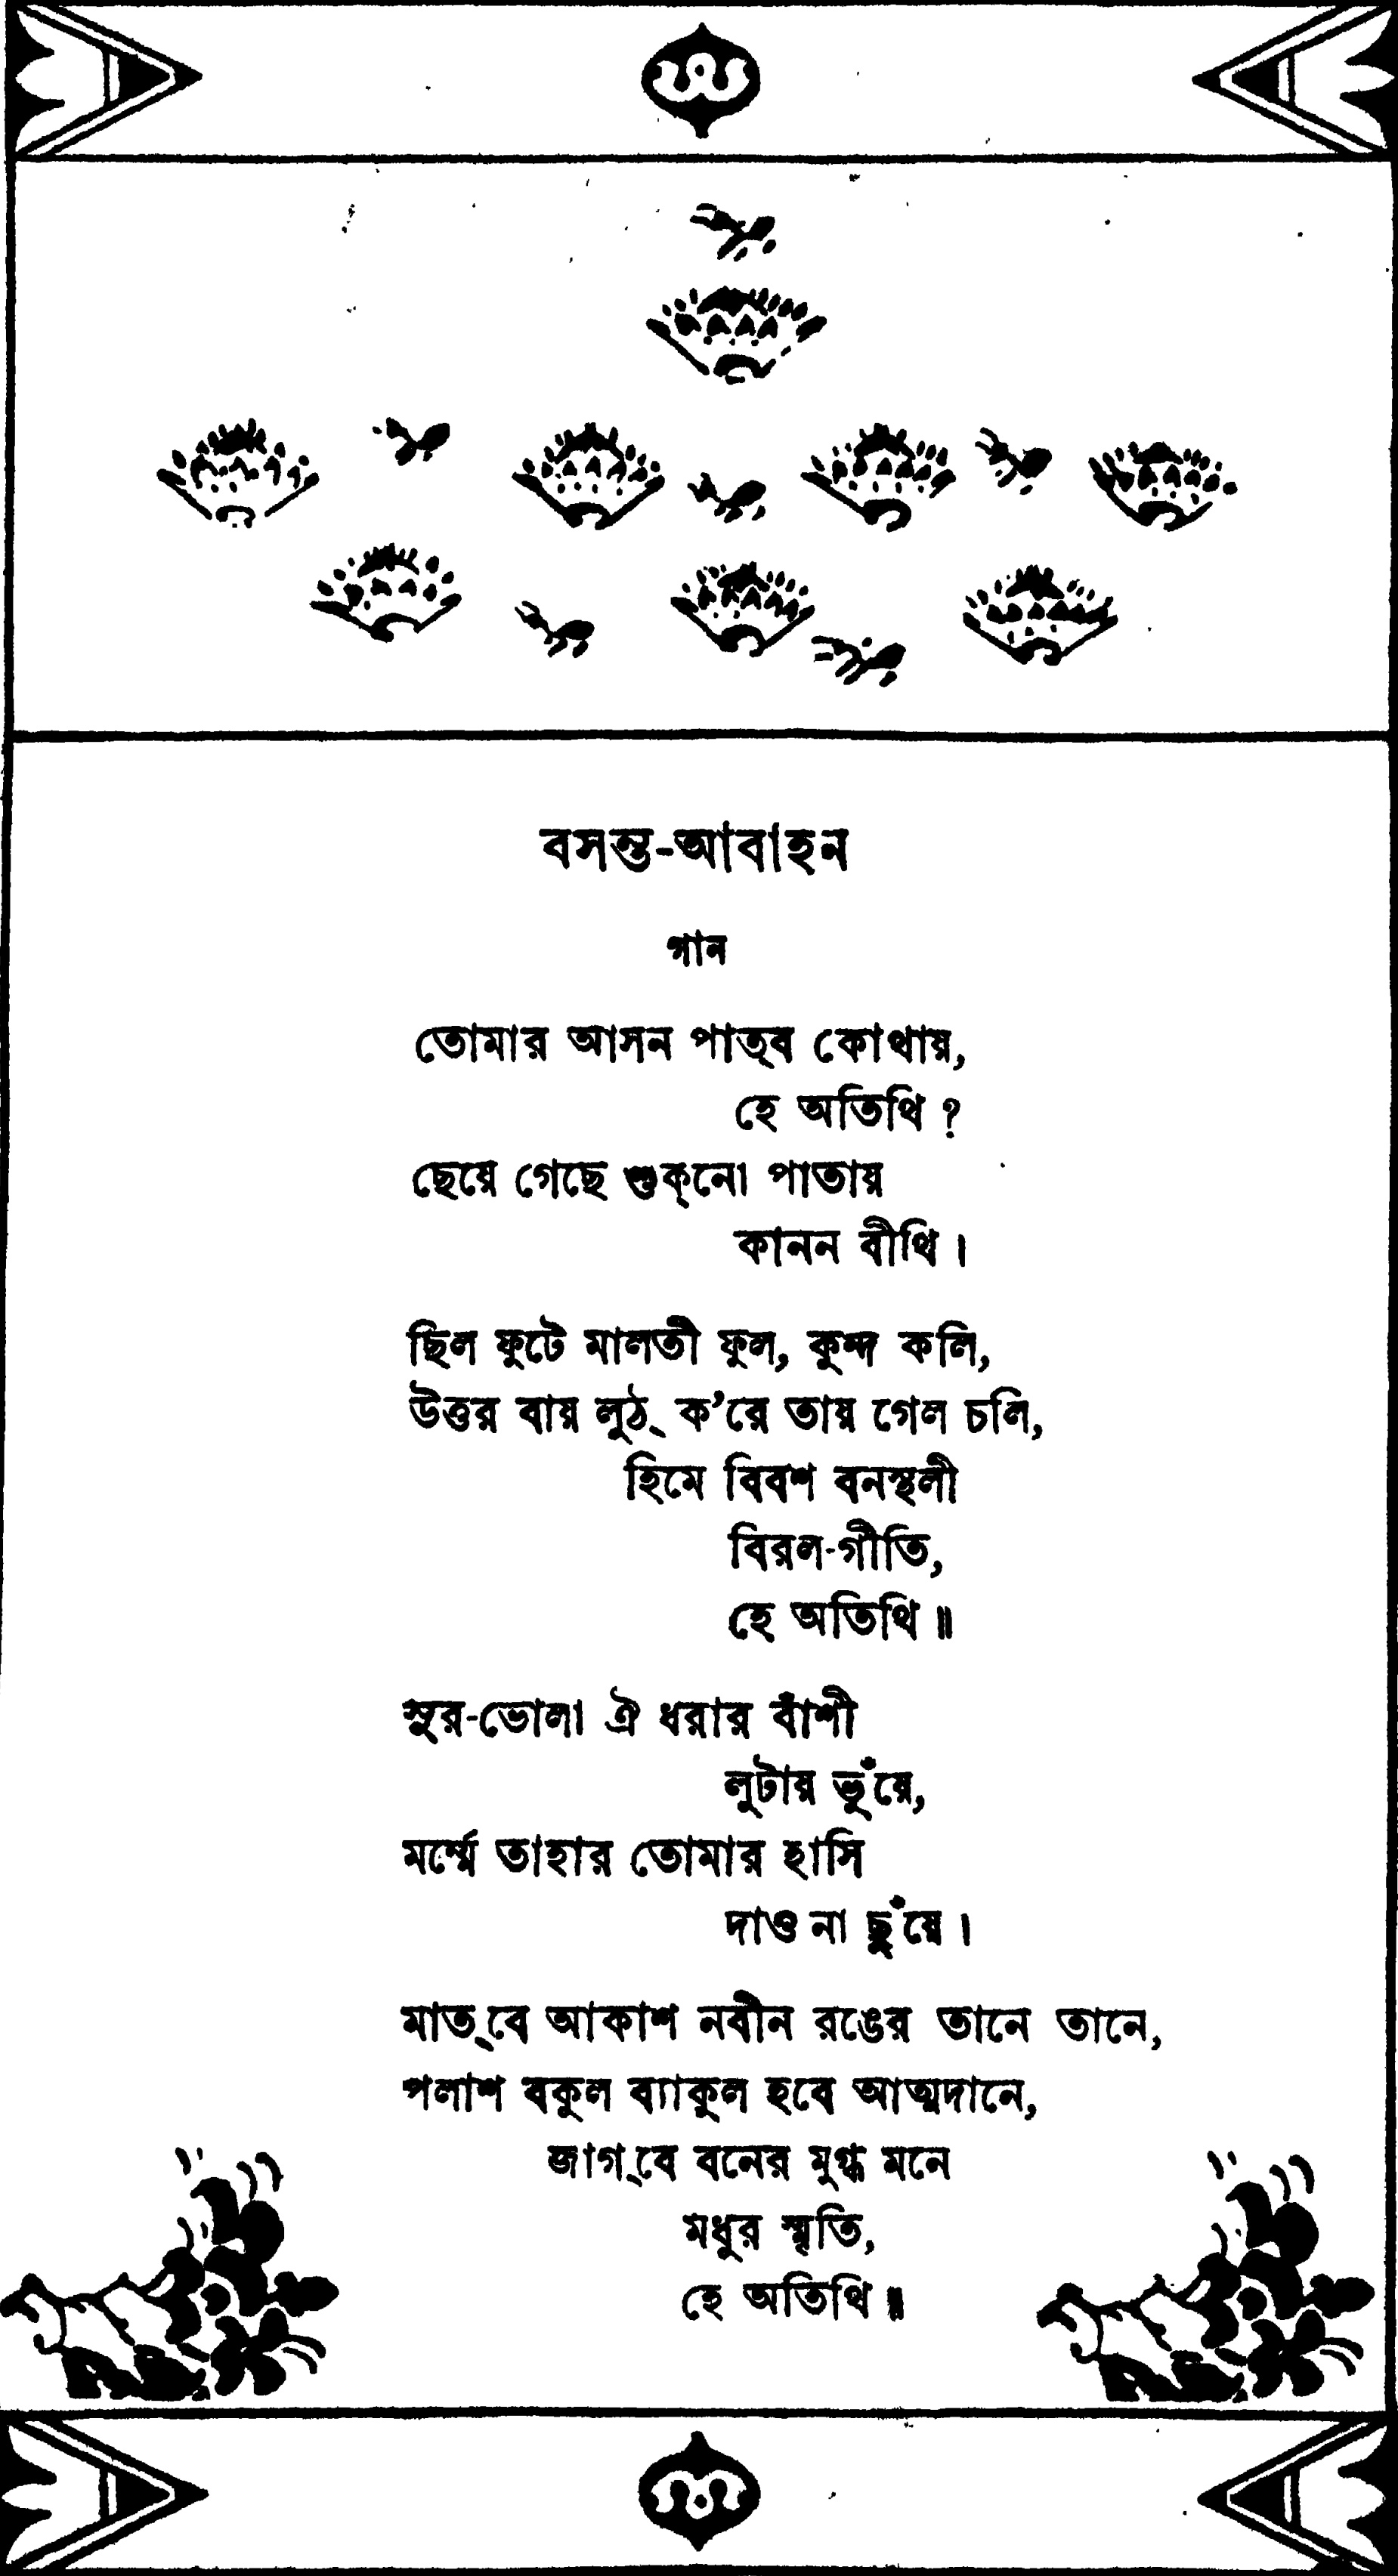 বসন্ত-আবাহন
গান
তোমার আসন পাত্‌ব কোথায়,
হে অতিথি ?
ছেয়ে গেছে শুক্‌নো পাতায়
কানন বীথি ।
ছিল ফুটে মালতী ফুল, কুন্দ কলি,
উত্তর বায় লুঠ্‌ ক’রে তায় গেল চলি,
হিমে বিবশ বনস্থলী
বিরল-গীতি,
হে অতিথি ॥
সুর-ভোলা ঐ ধরার বাঁশী
লুটায় ভুঁয়ে,
মর্ম্মে তাহার তোমার হাসি
দাও না ছুঁয়ে ।
মাত্‌বে আকাশ নবীন রঙের তানে তানে,
পলাশ বকুল ব্যাকুল হবে আত্মদানে,
জাগ্‌বে বনের মুগ্ধ মনে
মধুর স্মৃতি,
হে অতিথি ॥